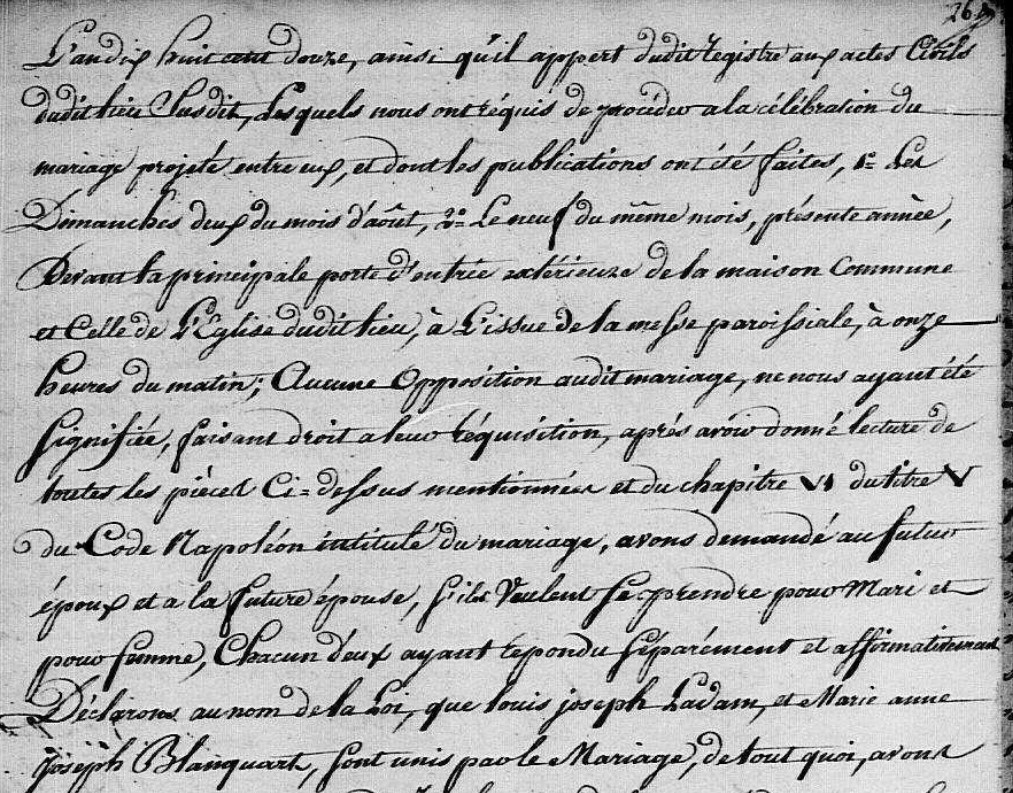 L'an dix huit cent douze, ainsi qu'il appert dudit registre aux actes Civils
dudit lieu Susdit, Lesquels nous ont réquis de procéder a la célébration du
mariage projeté entre eux, et dont les publications ont été faites, 1º Les
Dimanches deux du mois d'août, 2º Le neuf du même mois, présente année,
Devant la principale porte d'entrée extérieure de la maison Commune
et Celle de L'Eglise dudit lieu, à L'issue de la messe paroissiale, à onze
heures du matin; Aucune Opposition audit mariage, ne nous ayant été
signifiée, faisant droit a leur réquisition, aprés avoir donné lecture de
toutes les pièces Ci=dessus mentionnées et du chapitre VI du titre V
du Code Napoléon intitulé du mariage, avons demandé au futur
époux et a la future épouse, s'ils Veulent se prendre pour Mari et
pour femme, Chacun d'eux ayant repondu séparément et affirmativement
Déclarons au nom de la Loi, que louis joseph Ladam, et Marie anne
joseph Blanquart, sont unis par le Mariage, de tout quoi, avons